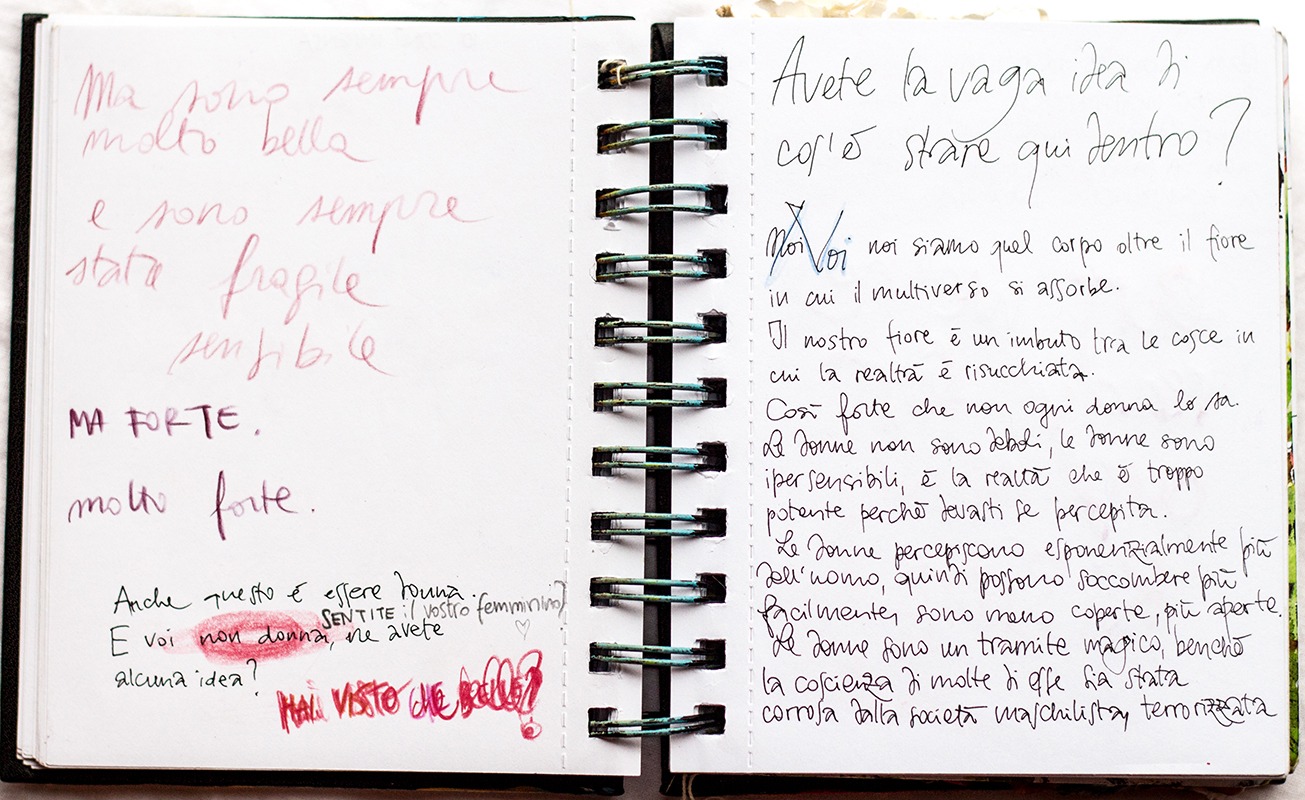 Ma sono sempre
molto bella
e sono sempre
stata fragile
sensibile
MA FORTE.
molto forte.
Anche questo è essere donna.
SENTITE il vostro femminino?
E voi non donna, ne avete
alcuna idea?
HAI VISTO CHE
Avete la vaga idea di
cos'è stare qui dentro?
Noi Voi noi siamo quel corpo oltre il fiore
in cui il multiverso si assorbe.
Il nostro fiore è un imbuto tra le cosce in
cui la realtà è risucchiata.
Così forte che non ogni donna lo sa.
Le donne non sono deboli, le donne sono
ipersensibili, è la realtà che è troppo
potente perché devasti se percepita.
Le donne percepiscono esponenzialmente più
dell'uomo, quindi possono soccombere più
facilmente, sono meno coperte, più aperte.
Le donne sono un tramite magico, benché
la coscienza di molte di esse sia stata
corrosa dalla società maschilista, terrorizzata